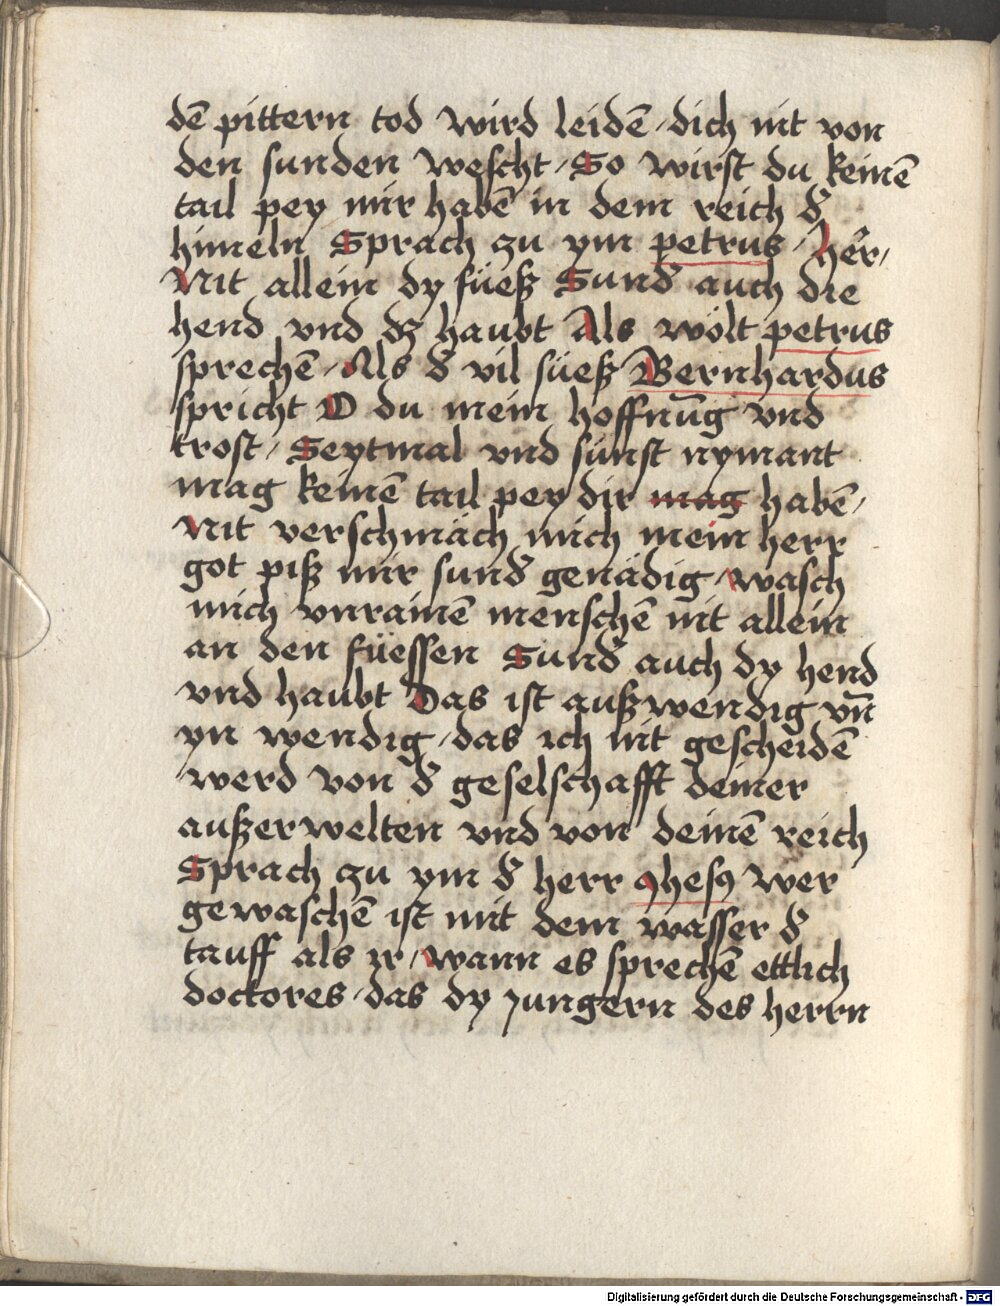 dē pittern tod wird leidē / dich nit von
den sunden wescht / So wirst du keinē
tail pey mir habē in dem reich d̄
himeln Sprach zu ym petrus / her /
Nit allein dy füeß Sund̄ auch die
hend vnd dz haubt Als wölt petrus
sprechē / Als d̄ vil süeß Bernhardus
spricht O du mein hoffnūg vnd
trost / Seytmal vnd sunst nymant
mag keinē tail pey dir mag habē /
Nit verschmäch mich mein herr
got piß mir sund̄ genädig / wasch
mich vnrainē menschē nit allein
an den füessen Sund̄ auch dy hend
vnd haubt Das ist außwendig vn̄
yn wendig / das ich nit gescheidē
werd von d̄ geselschafft deiner
außerwelten vnd von deinē reich
Sprach zu ym d̄ herr yhesꝯ wer
gewaschē ist mit dem wasser d̄
tauff als ir / wann es sprechē ettlich
doctores / das dy jungern des herrn
Digitalisierung gefördert durch die Deutsche Forschungsgemeinschaft - DFG